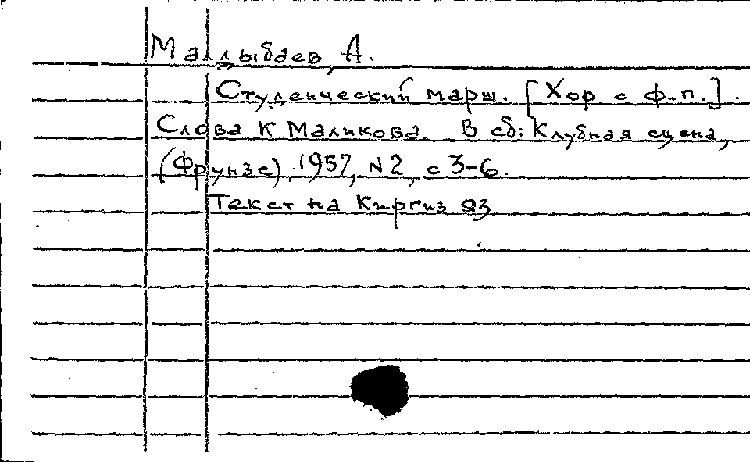 Малдыбаев, А.
Студенческий марш. [Хор с ф-п.].
Слова К Маликова. В сб: Клубная сцена,
(Фрунзе), 1957, N2, с 3-6.
Текст на Киргиз яз